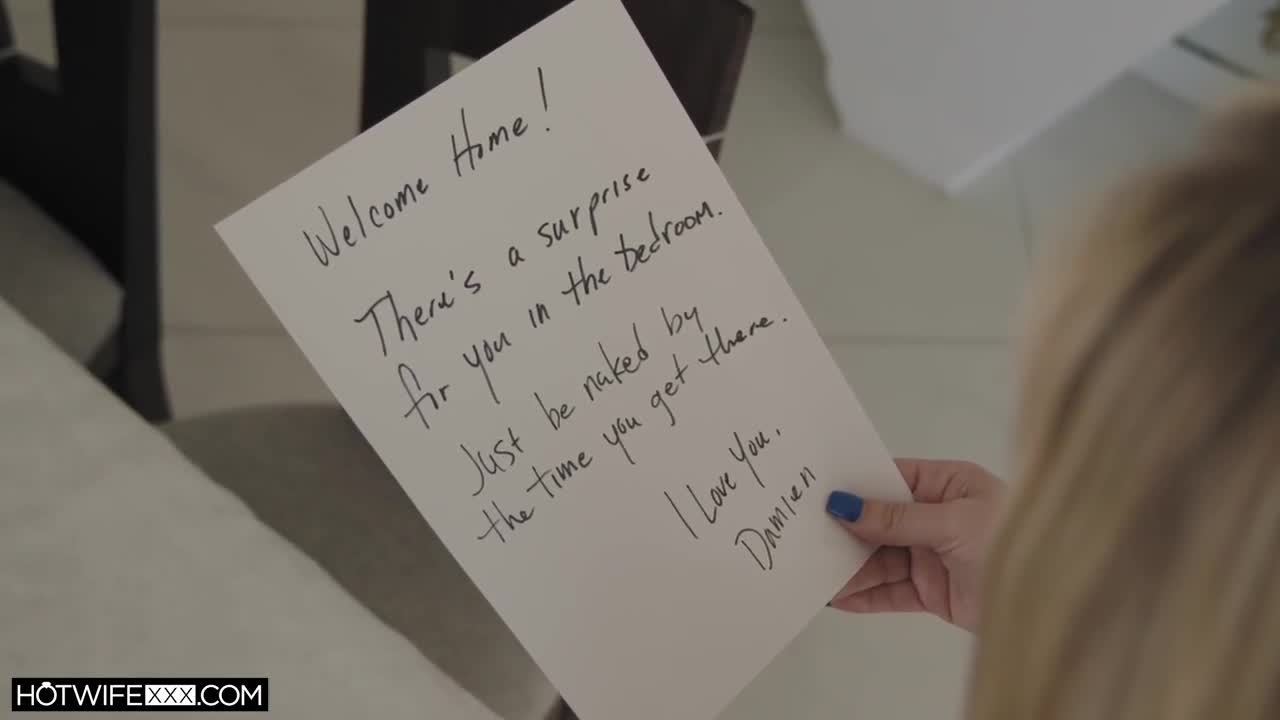 Welcome Home!
There's a surprise
for you in the bedroom.
Just be naked by
the time you get there.
I Love You.
Damien
HOTWIFEXXX.COM